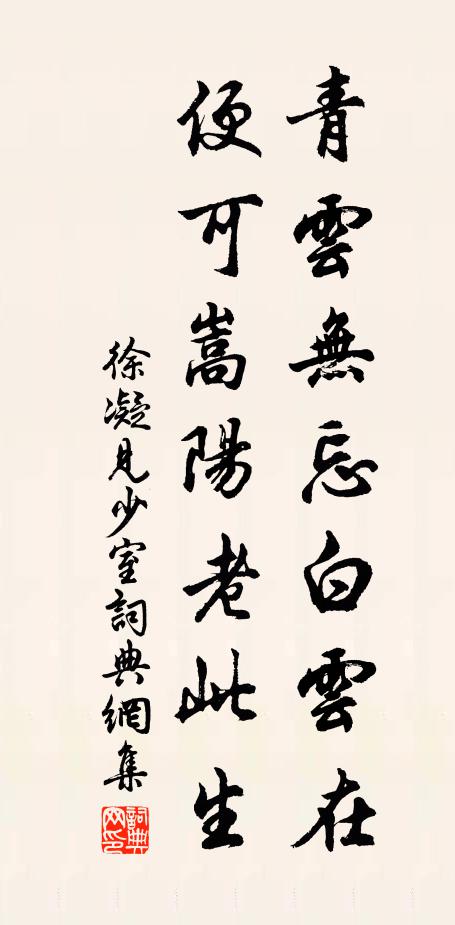 青雲無忘白雲在
便可嵩陽老此生
徐凝見少室詞典網集
詞典網印